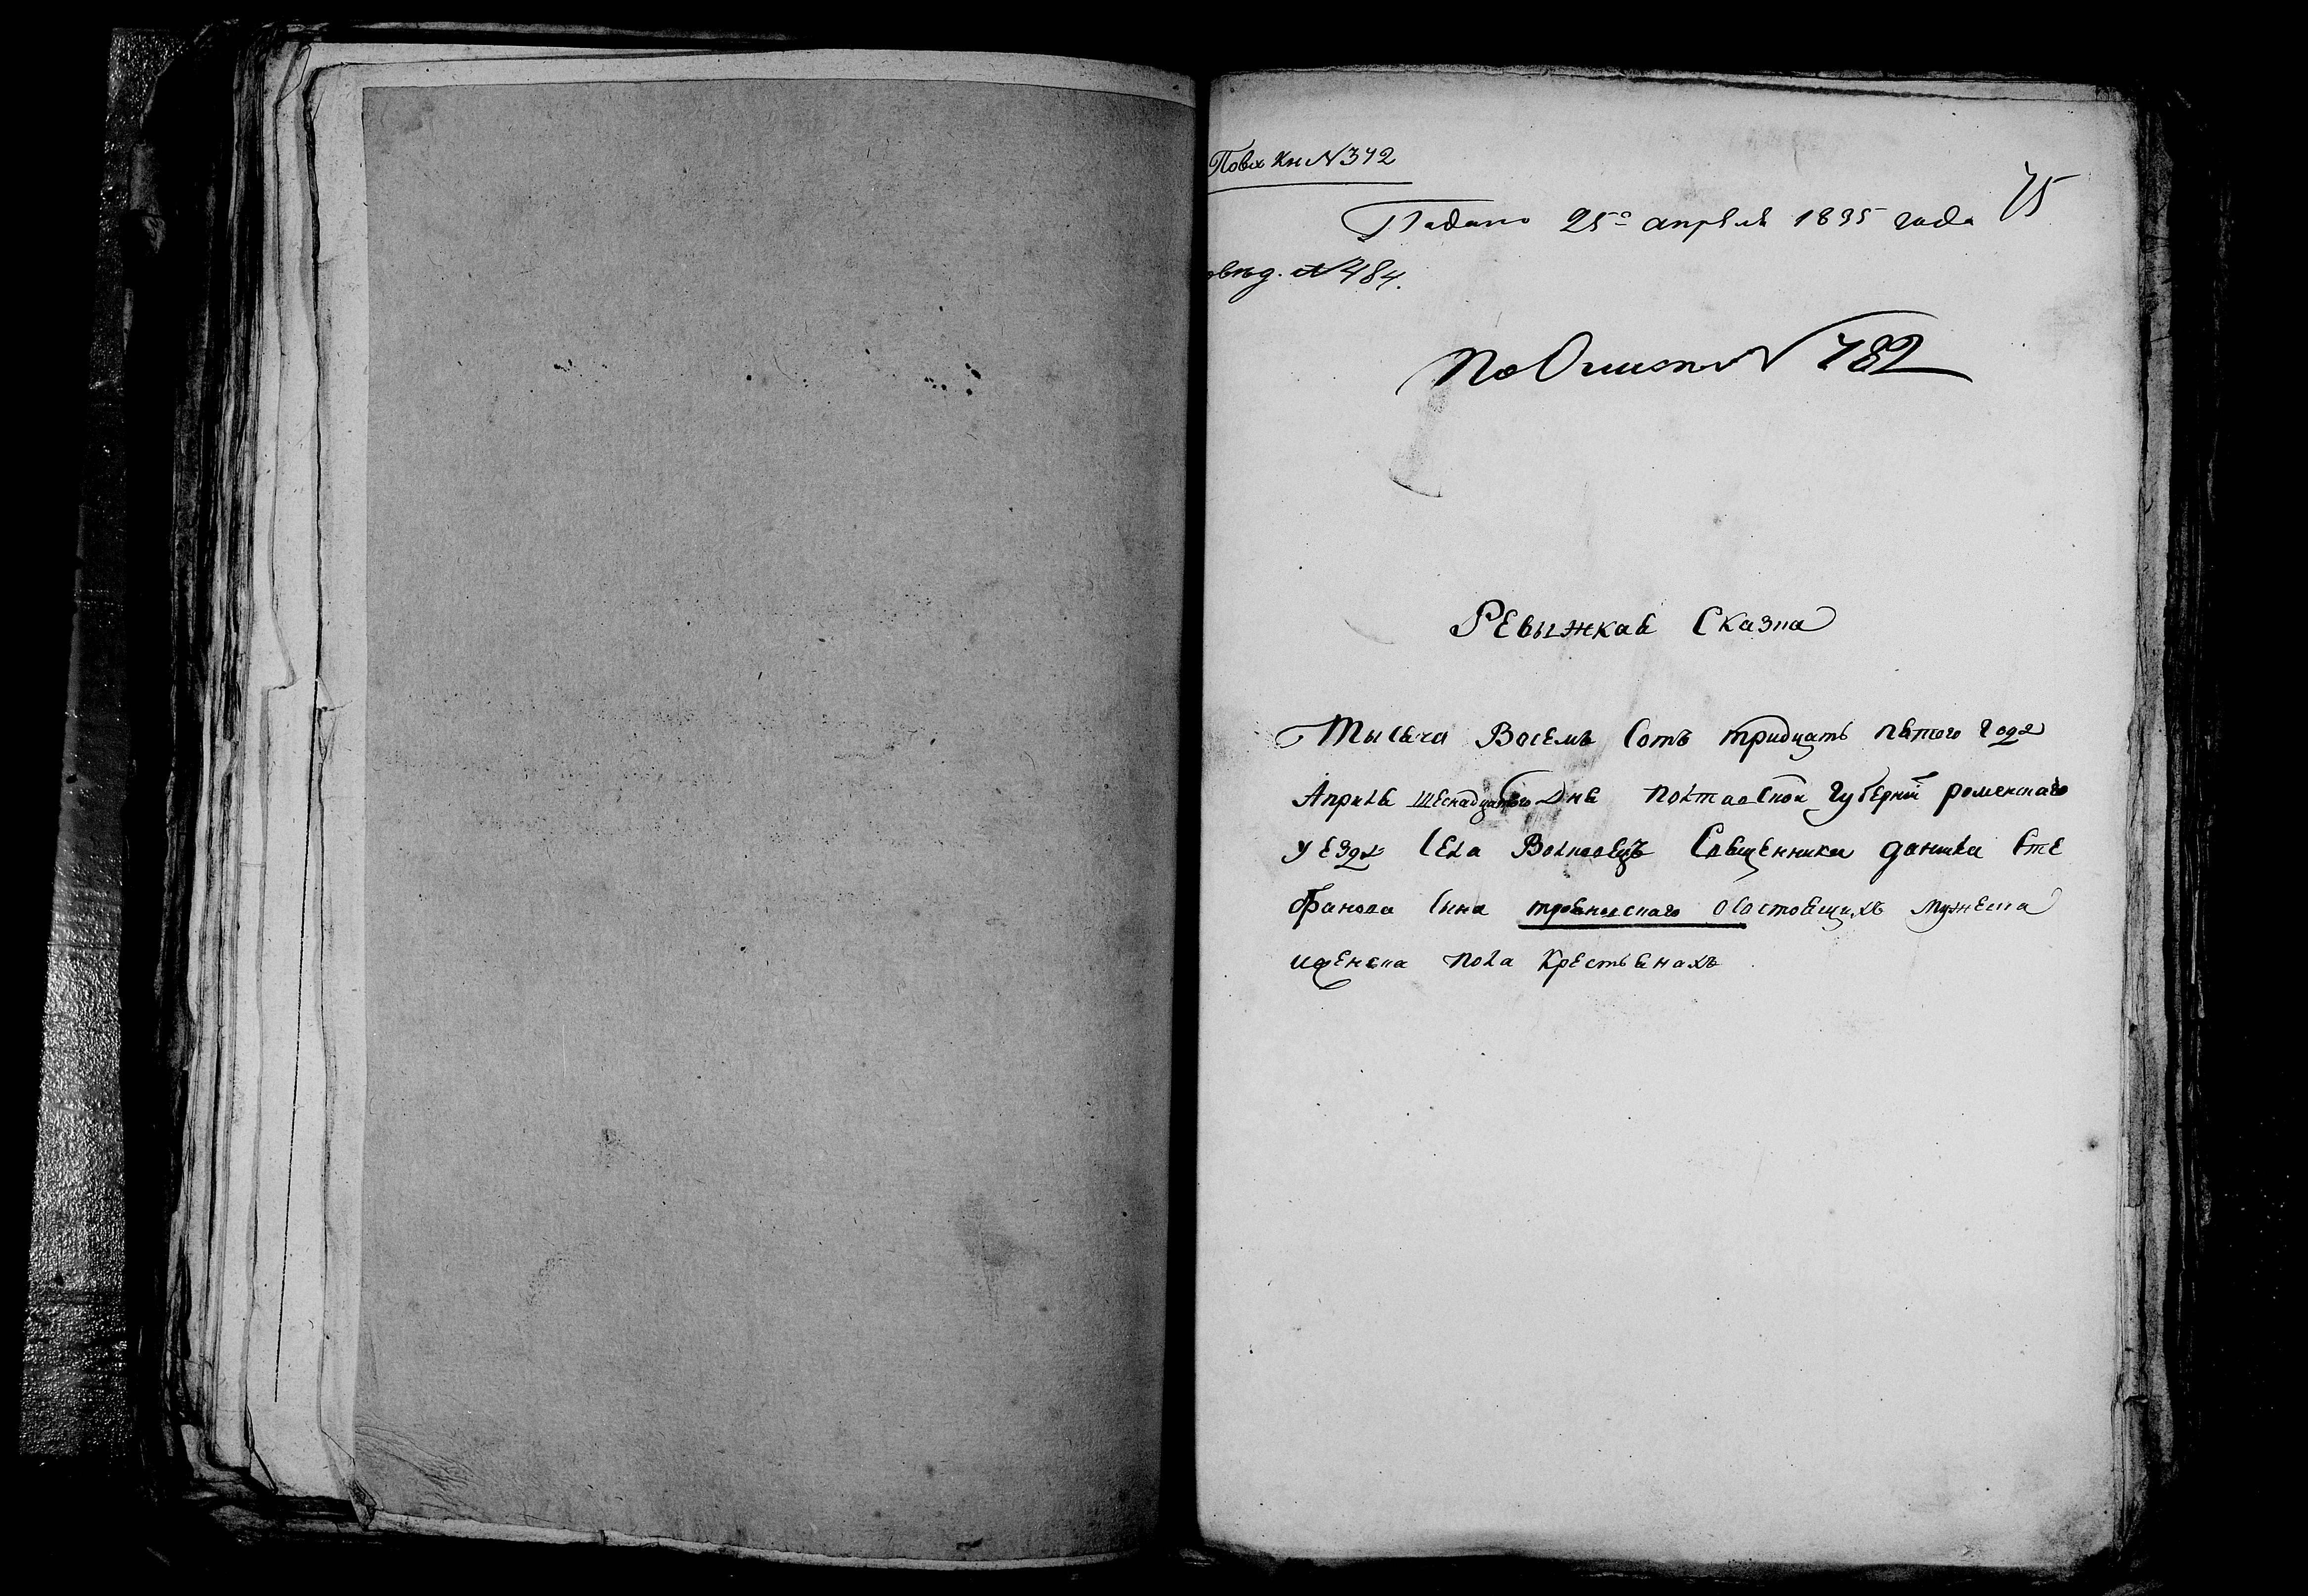 По вх Кн №372
75
Подано 25го апреля 1835 года
№ 484.
По Описи № 782
Ревыжкая Сказка
Тысяча Восемъ Сотъ тридцать пятого году
Априля шеснадцатого Дня полтавской губернии роменскаго
уезду Села Волковцъ Священника данила Сте
фанова Сина о состоящихъ мужеска
иженска пола Крестьянахъ